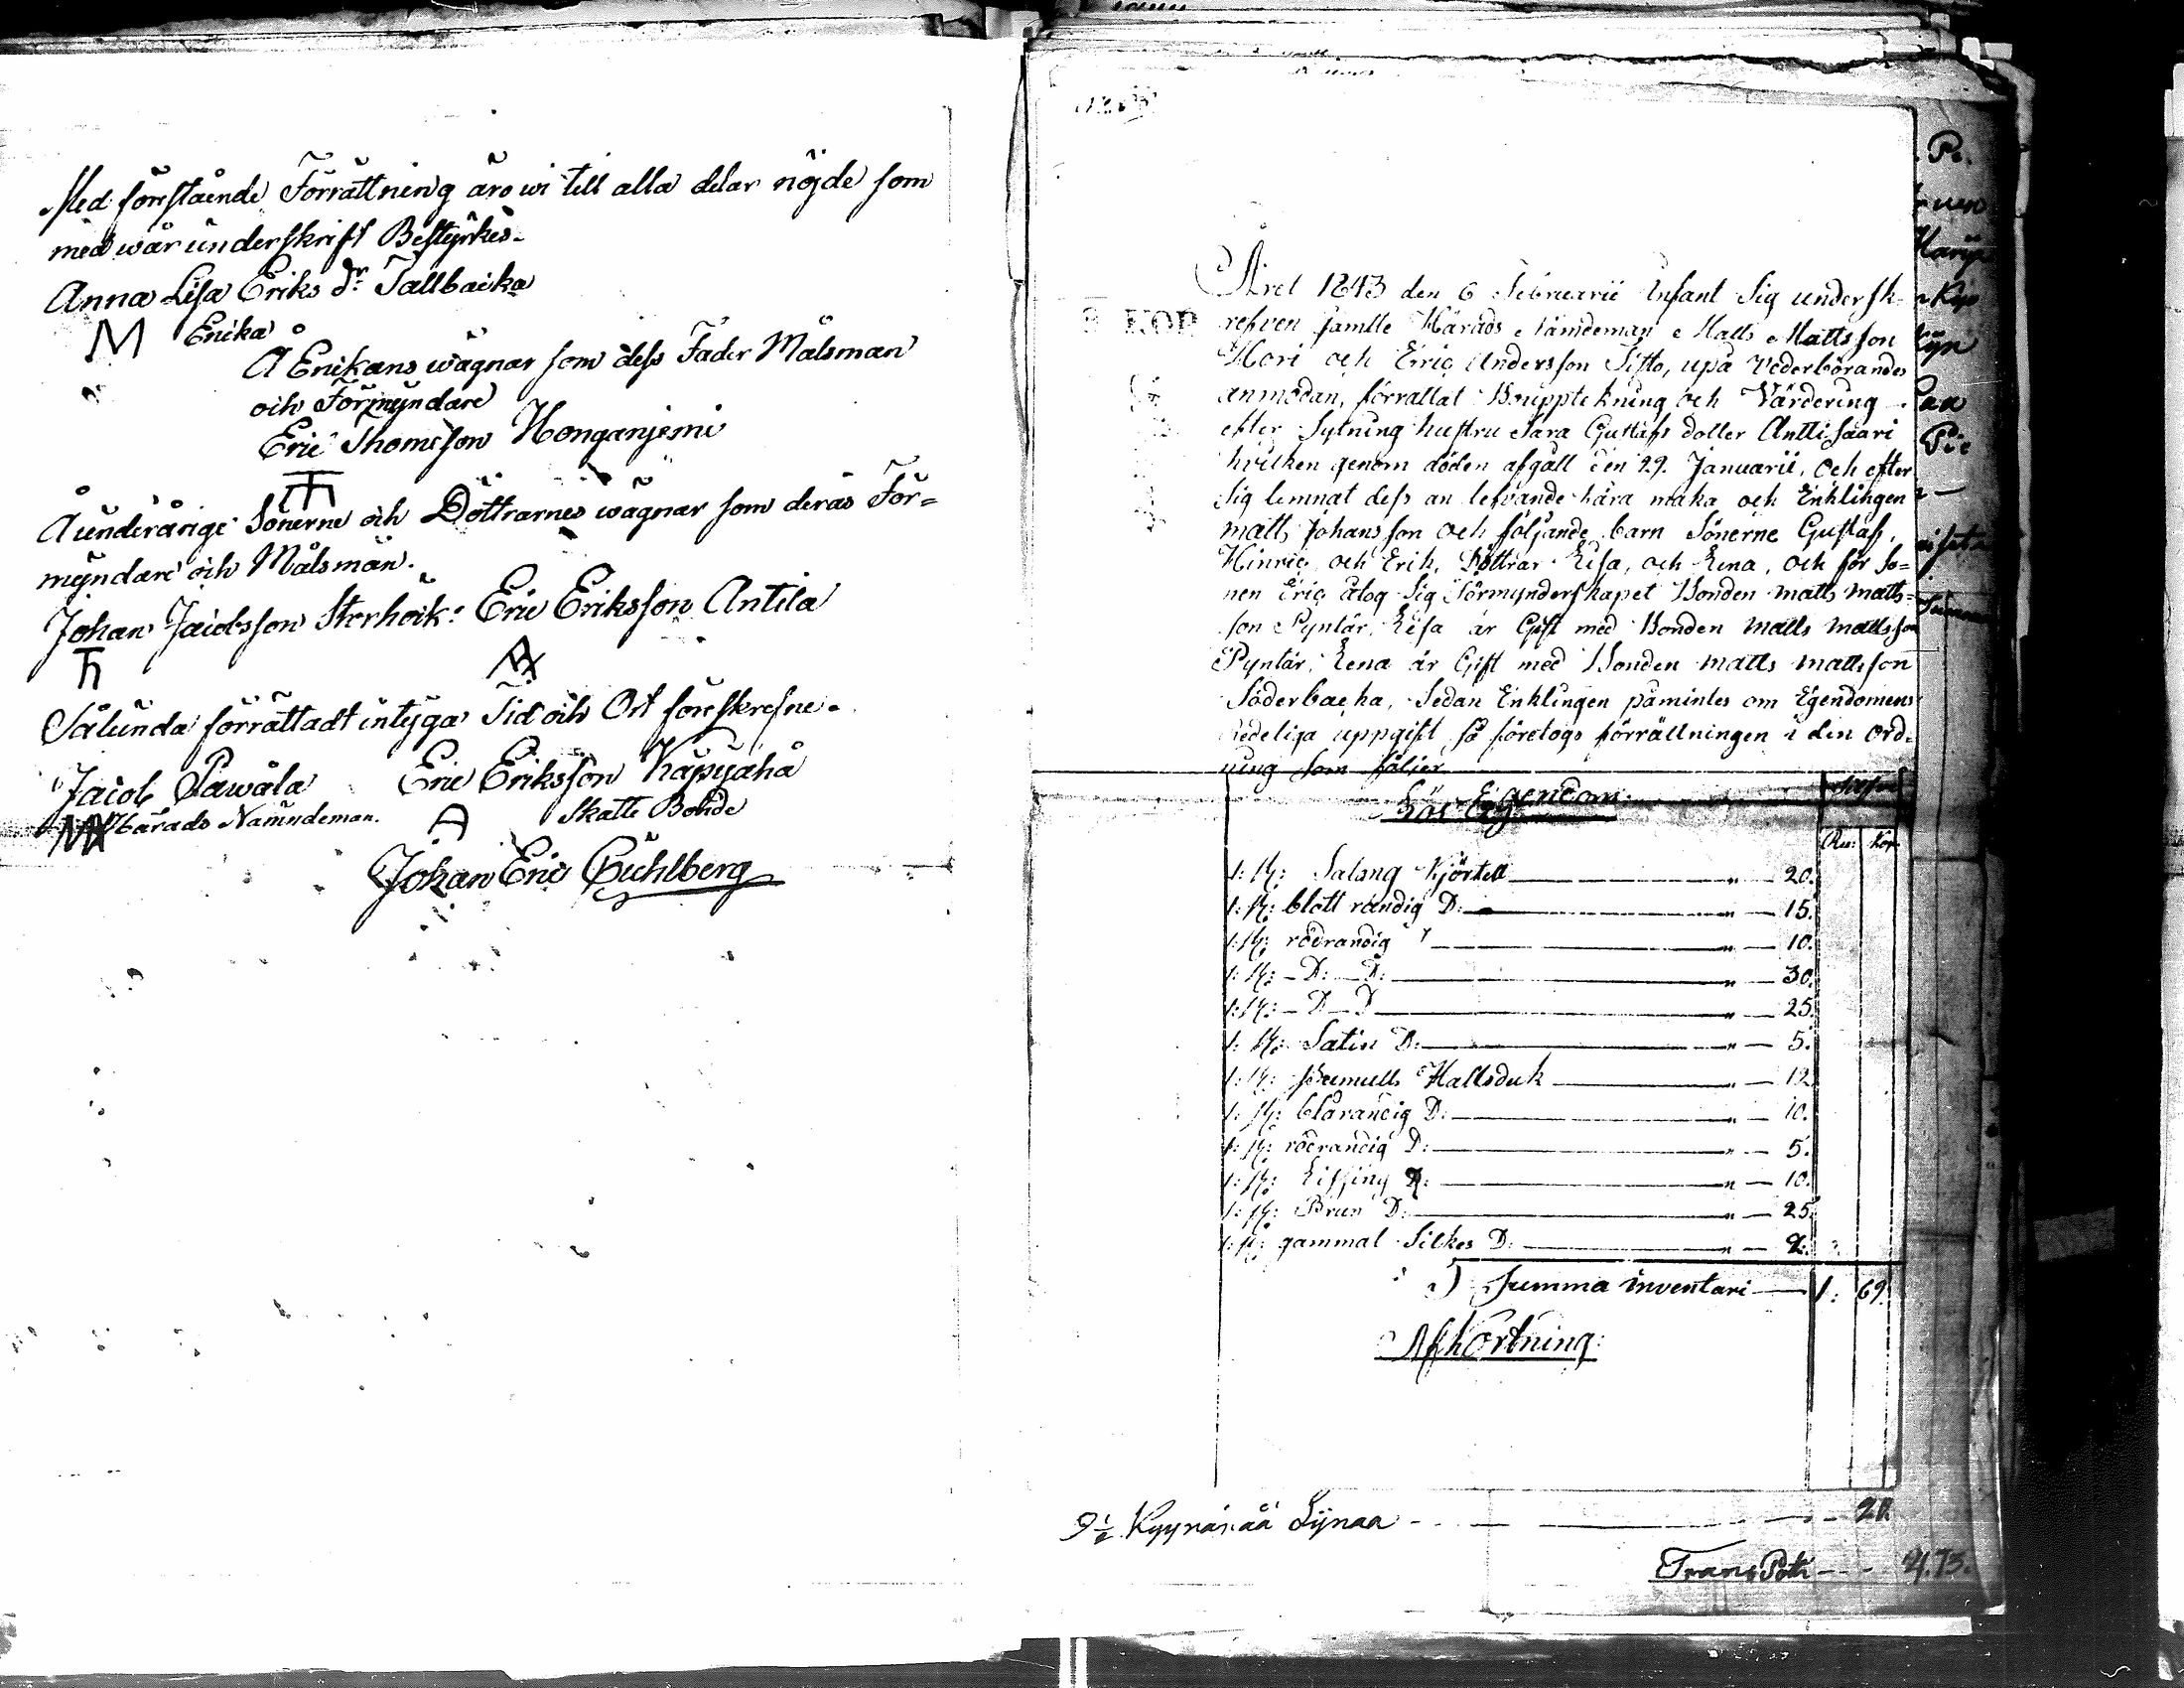 Med förestående Förrättning äro wi till alla delar nöjde som
med wår underskrift Bestyrkes.
Anna Lisa Eriks dr Tallbacka
Erika
Å Erikans wägnar som dess Fader Målsman
och Förmyndare
Eric Thomsson Honganjemi
Å underårige Sönerne och Döttrarnes wägnar som deras För=
myndare och Målsmän.
Johan Jacobsson Storhöik: Eric Eriksson Antila
Sålunda förrättadt intyga Tid och Ort föreskrefne.
Jacob Pawåla Eric Eriksson Käpyaho
Härads Nämndeman. Skatte Bonde
Johan Eric Öuhlberg
Året 1843 den 6 Februarii infant Sig undersk-
refven samtle Härads Nämdeman Matts Mattsson
Hori och Eric Andersson Sisto, upå Vederbörandes
anmodan, förrättat Bouppteknüng och Värdering
efter Sytning hustru Sara Gustafs dotter Anttisaari
hvilken genom döden afgått den 29. Januarii, och efter
Sig lemnat dess an lefvande kära maka och Enklingen
matts Johansson och följande barn Sönerne Gustaf,
Hinric och Erik, Döttrar Lisa, och Lena, och för So=
nen Eric åtog Sig Förmynderskapet Bonden matts matts=
son Pyntär, Lisa är Gift med Bonden matts mattsson
Pyntär, Lena är Gift med Bonden matts mattsson
Söderbacka, Sedan Enklingen påmintes om Egendomens
redeliga uppgift så företogs förrättningen i den ord-
ning som följer
Lös Egendom.
Ru: Kop
1: st: Salong Kjörtel " 20.
1: st: blott randig D: " 15.
1: st: rödrandig " 10.
1: st: D: D: " 30.
1: st: D D " 25.
1: st: Satin D: " 5.
1: st: bumulls Hallsduk " 12
1: st: blårandig D: " 10.
1: st: rödrandig D: " 5.
1: st: D: " 10.
1: st: Brun D: " 25.
1: st: gammal Silkes D: " 2.
Summa inventari 1: 69.
Afkortning:
9 1/2 Kyynärää Lijnaa 20.
TransPort 4.73.